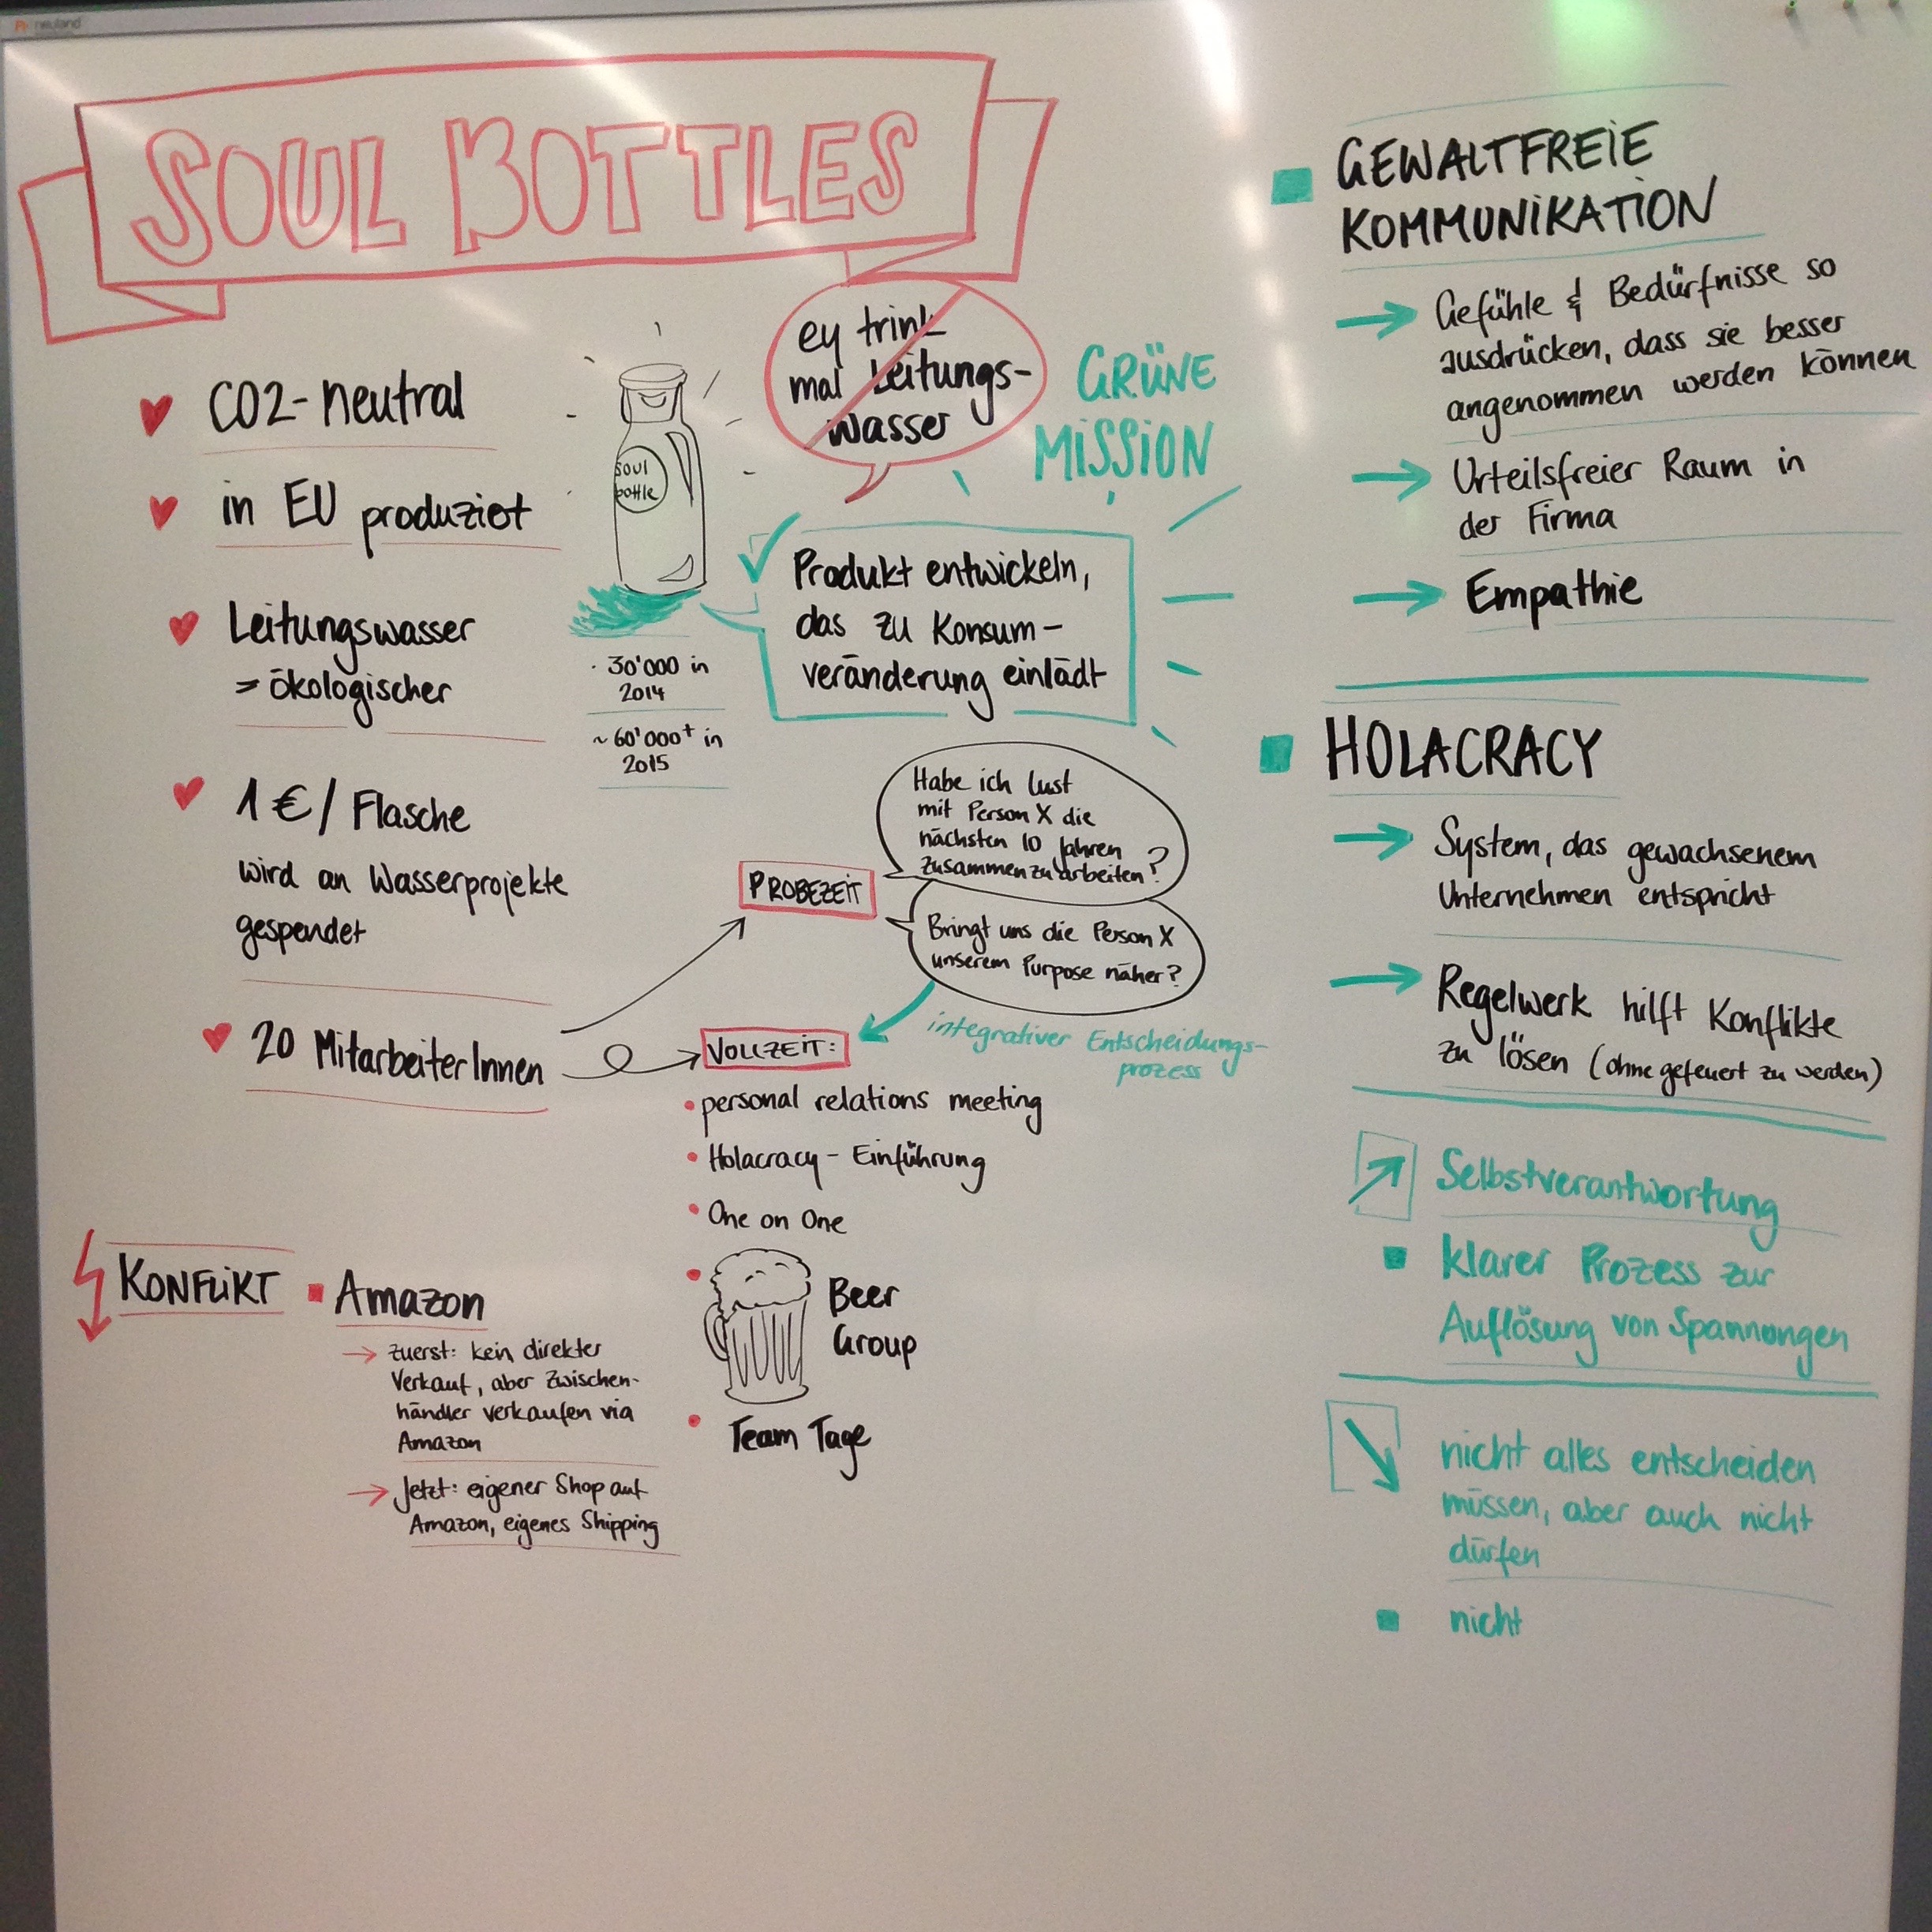 neuland
SOUL BOTTLES
CO2-neutral
in EU produziert
Leitungswasser
= ökologischer
1 € / Flasche
wird an Wasserprojekte
gespendet
20 MitarbeiterInnen
soul
bottle
· 30'000 in
2014
~ 60'000+ in
2015
ey trink
mal Leitungs-
wasser
GRÜNE
MISSION
Produkt entwickeln,
das zu Konsum-
veränderung einlädt
PROBEZEIT
Habe ich Lust
mit Person X die
nächsten 10 Jahren
zusammenzuarbeiten?
Bringt uns die Person X
unserem Purpose näher?
integrativer Entscheidungs-
prozess
VOLLZEIT:
• personal relations meeting
• Holacracy - Einführung
• One on One
• Beer
Group
• Team Tage
KONFLIKT
Amazon
→ zuerst: kein direkter
Verkauf, aber Zwischen-
händler verkaufen via
Amazon
→ Jetzt: eigener Shop auf
Amazon, eigenes Shipping
GEWALTFREIE
KOMMUNIKATION
→ Gefühle & Bedürfnisse so
ausdrücken, dass sie besser
angenommen werden können
→ Urteilsfreier Raum in
der Firma
→ Empathie
HOLACRACY
→ System, das gewachsenem
Unternehmen entspricht
→ Regelwerk hilft Konflikte
zu lösen (ohne gefeuert zu werden)
Selbstverantwortung
klarer Prozess zur
Auflösung von Spannungen
nicht alles entscheiden
müssen, aber auch nicht
dürfen
nicht